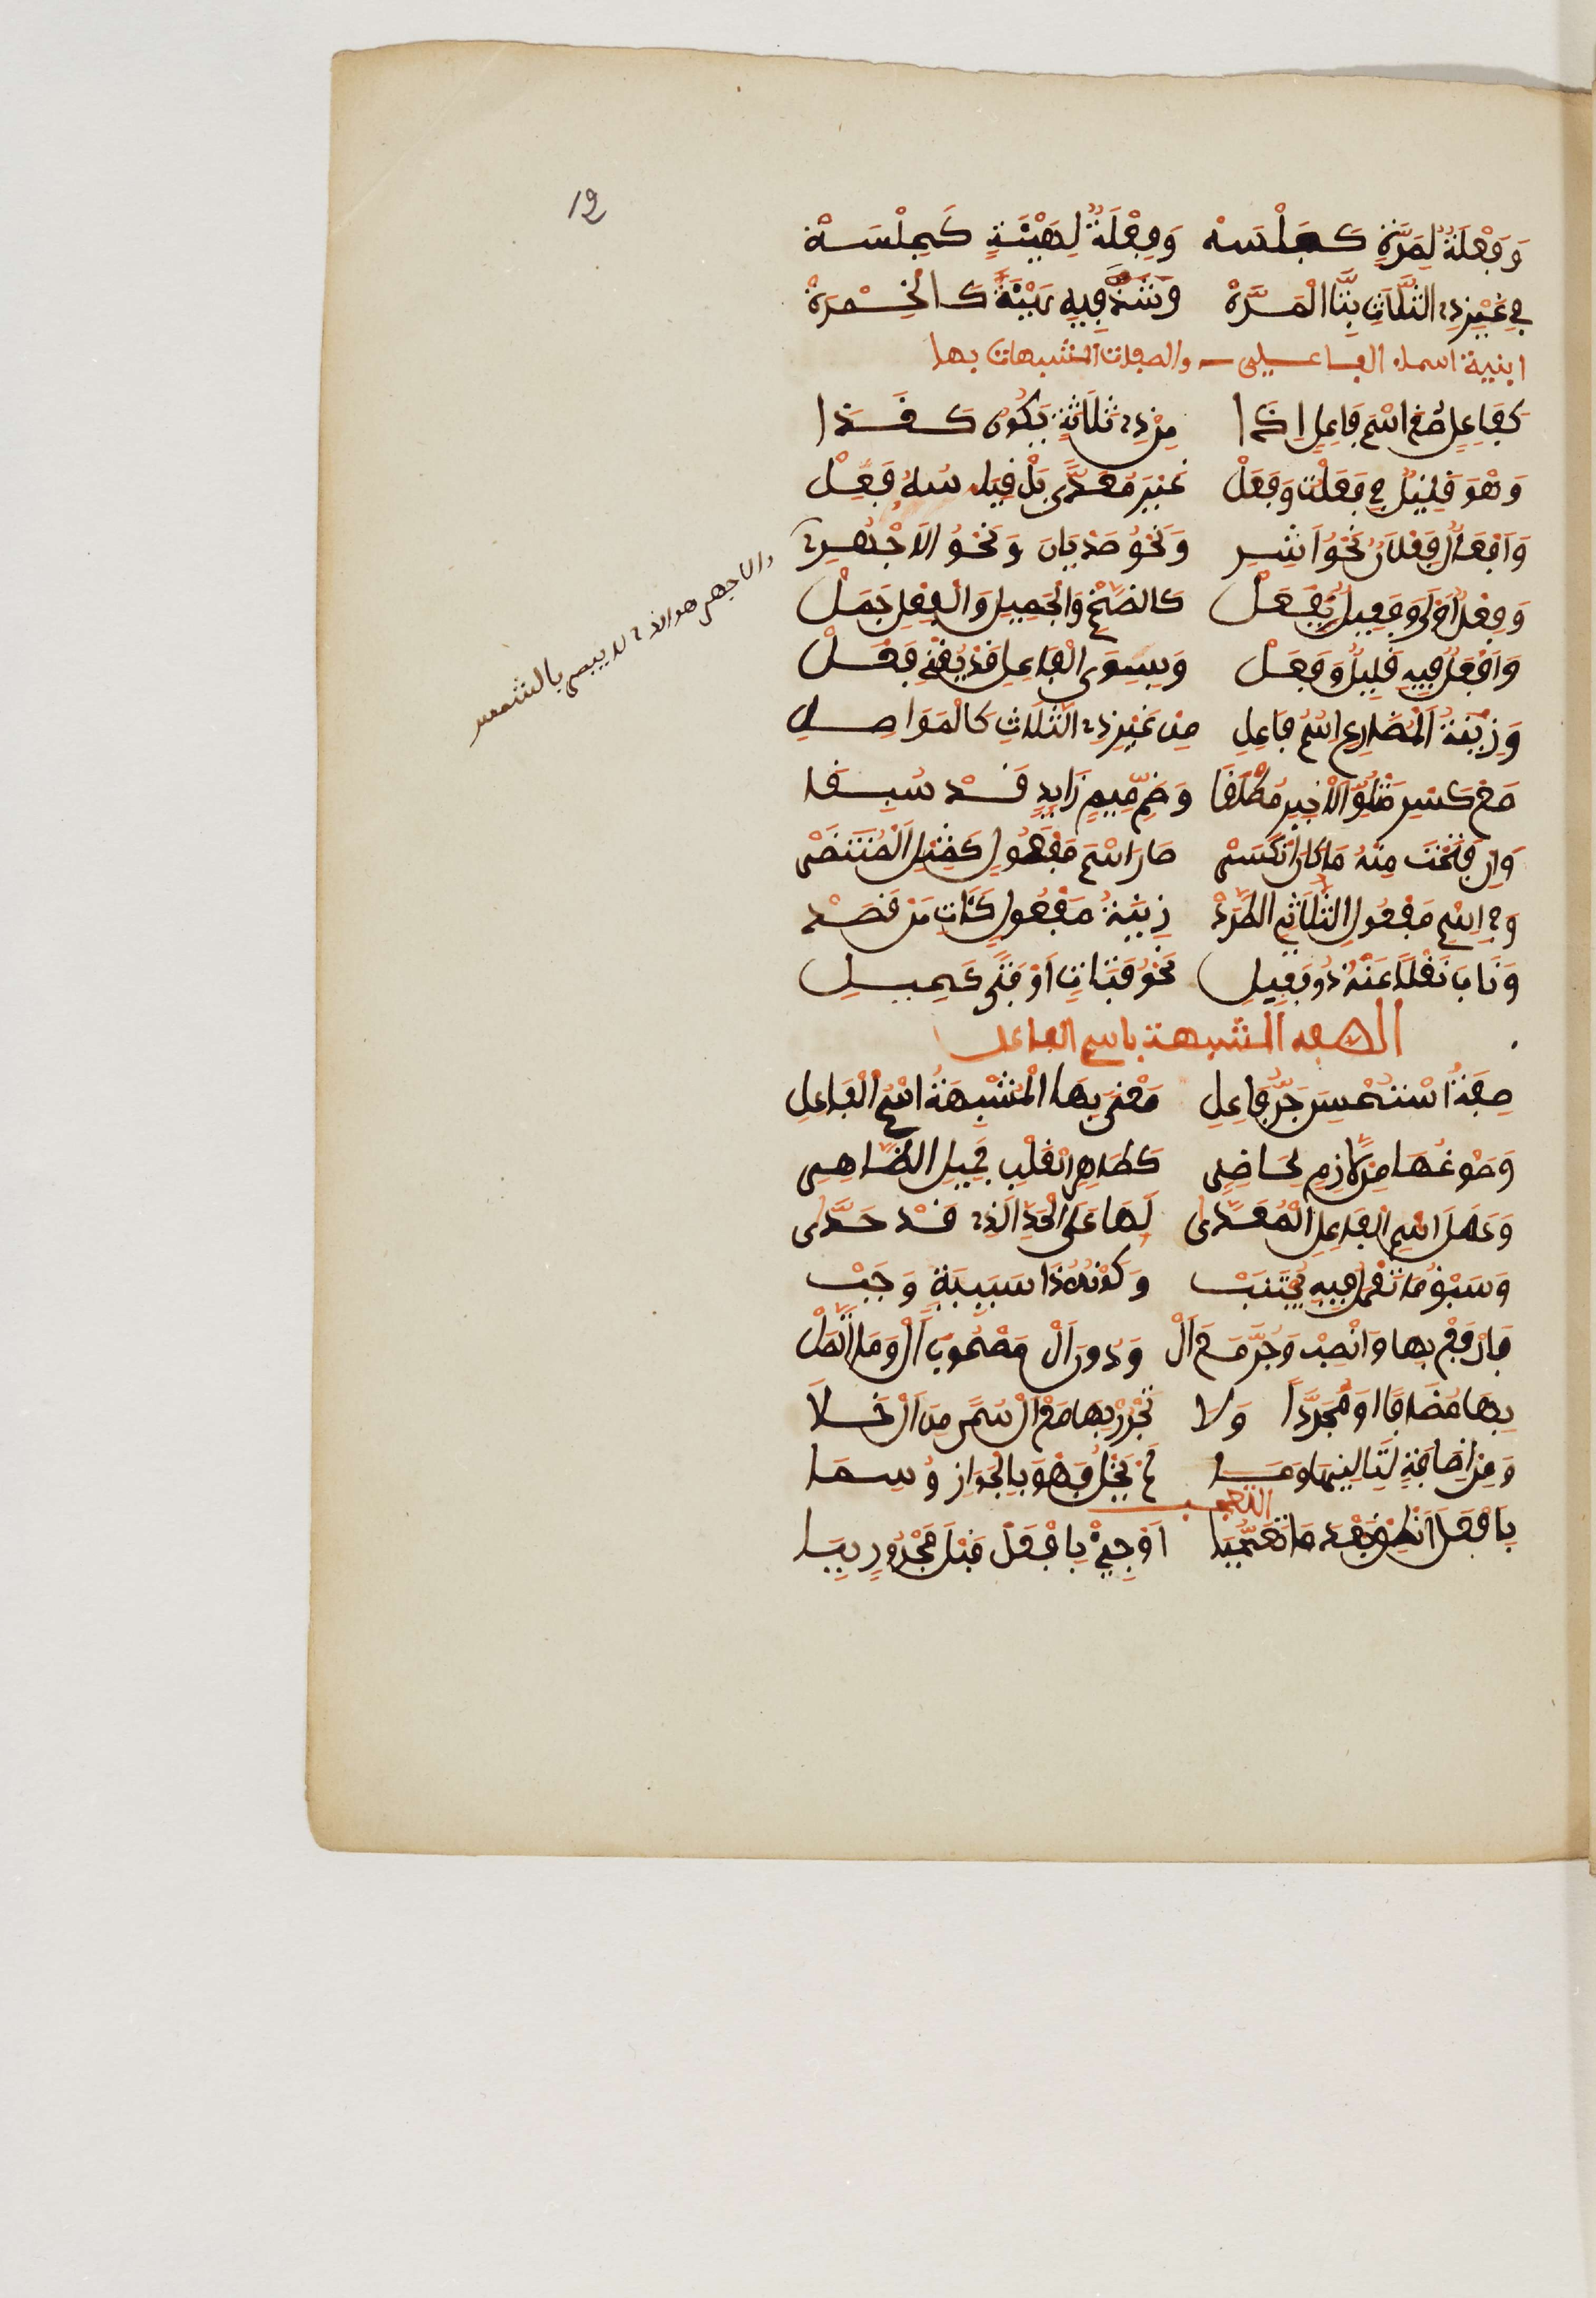 12
وَفَعْلَةٌ لِمَرَّةٍ كَجَلْسَهْ وَفِعْلَةٌ لِهَيْئَةٍ كَجِلْسَةْ
فِي غَيْرِ ذِي الثَّلَاثِ بِتَّا الْمَرَّةْ وَشَذَّ فِيهِ هَيْئَةٌ كَالْخِمْرَةْ
ابنية اسماء الفاعلين والصفات المشبهات بها
كَفَاعِلٍ صُغِ اسْمَ فَاعِلٍ اِذَا مِنْ ذِي ثَلَاثَةٍ يَكُونُ كَغَذَا
وَهْوَ قَلِيلٌ فِي فَعُلْتُ وَفَعِلْ غَيْرَ مُعَدًّى بَلْ قِيَاسُهُ فَعِلْ
وَافْعَلٌ فَعْلَانُ نَحْوُ اَشِرِ وَنَحْوُ صَدْيَانَ وَنَحْوُ الاَجْهَرِ
وَفَعْلٌ اَوْلَى وَفَعِيلٌ بِفَعُلْ كَالضَّخْمِ وَالْجَمِيلِ وَالْفِعْلُ جَمُلْ
وَاَفْعَلٌ فِيهِ قَلِيلٌ وَفَعَلْ وَبِسِوَى الْفَاعِلِ قَدْ يَغْنَى فَعَلْ
وَزِنَةُ الْمُضَارِعِ اسْمُ فَاعِلِ مِنْ غَيْرِ ذِي الثَّلَاثِ كَالْمُوَاصِلِ
مَعْ كَسْرِ مَتْلُوِّ الْاَخِيرِ مُطْلَقَا وَضَمِّ مِّيمٍ زَايِدٍ قَدْ سُبِقَا
وَاِنْ فَتَحْتَ مِنْهُ مَا كَانَ انْكَسَرْ صَارَ اسْمَ مَفْعُولٍ كَمِثْلِ الْمُنْتَظَرْ
وَفِي اسْمِ مَفْعُولِ الثُّلَاثِيِّ اطَّرَدْ زِنَةُ مَفْعُولٍ كَآتٍ مِنْ قَصَدْ
وَنَابَ نَقْلًا عَنْهُ ذُو فَعِيلِ نَحْوُ فَتَاةٍ اَوْ فَتًى كَحِيلِ
الصفة المشبهة باسم الفاعل
صِفَةٌ اسْتُحْسِنَ جَرُّ فَاعِلِ مَعْنًى بِهَا الْمُشْبِهَةُ اسْمَ الْفَاعِلِ
وَصَوْغُهَا مِنْ لَازِمٍ لِحَاضِرِ كَطَاهِرِ الْقَلْبِ جَمِيلِ الظَّاهِرِ
وَعَمَلُ اسْمِ الْفَاعِلِ الْمُعَدَّى لَهَا عَلَى الْحَدِّ الَّذِي قَدْ حُدَّى
وَسَبْقُ مَا تَعْمَلُ فِيهِ مُجْتَنَبْ وَكَوْنُهُ ذَا سَبَبِيَّةٍ وَجَبْ
فَارْفَعْ بِهَا وَانْصِبْ وَجُرَّ مَعَ اَلْ وَدُونَ اَلْ مَصْحُوبَ اَلْ وَمَا اتَّصَلْ
بِهَا مُضَافًا اَوْ مُجَرَّدًا وَلَا تَجْرُرْ بِهَا مَعْ اَلْ سُمًى مِنْ اَلْ خَلَا
وَمِنْ اِضَافَةٍ لِتَالِيهَا وَمَا لَمْ يَخْلُ فَهْوَ بِالْجَوَازِ وُسِمَا
التعجب
بِاَفْعَلَ انْطِقْ بَعْدَ مَا تَعَجُّبَا اَوْ جِئْ بِاَفْعِلْ قَبْلَ مَجْرُورٍ بِبَا
والاجهر هو الذي لا يبصر بالشمس